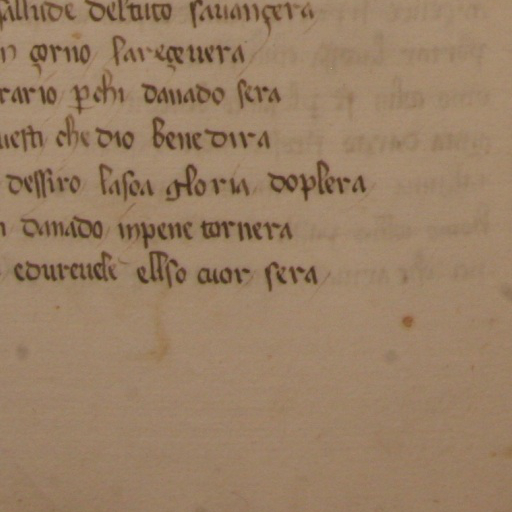 sallude deltuto sauançera
n çorno lareçeuera
rario ꝑchi danado sera
uesti che dio bene dira
dessiro lasoa gloria doplera
danado inpene tornera
edureuele ellso cuor sera